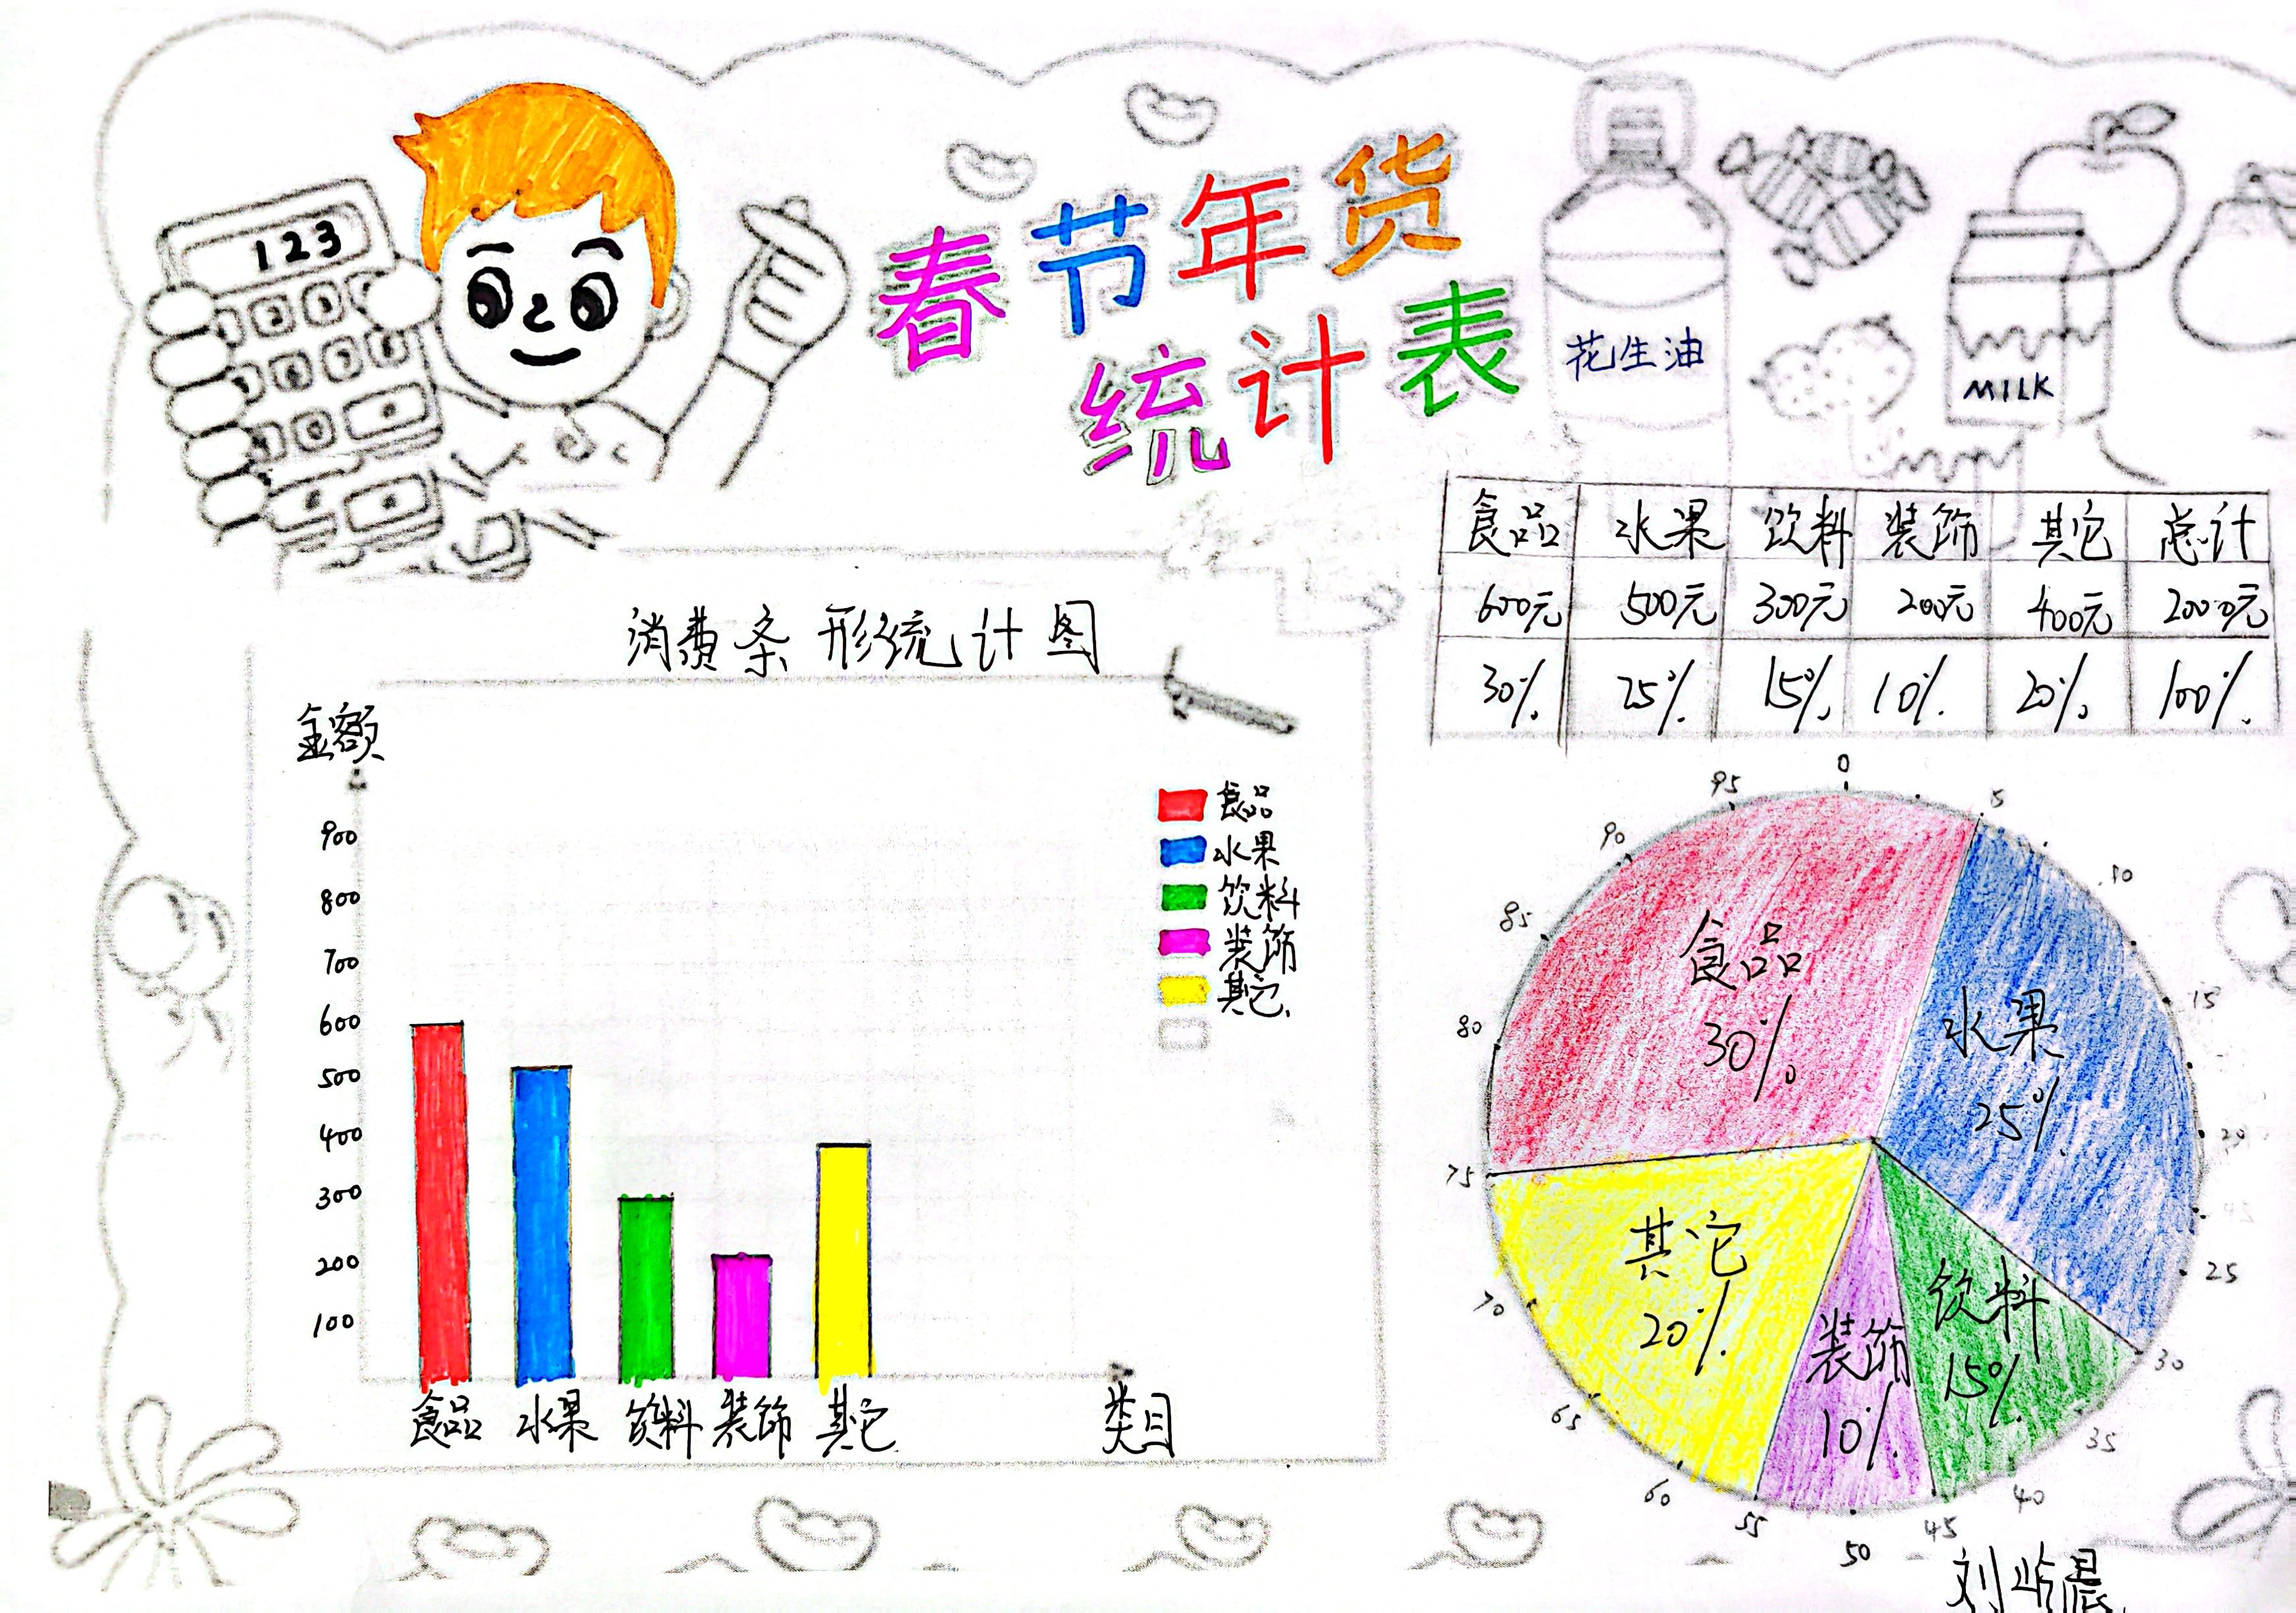 123
春节年货
统计表
花生油
MILK
食品 水果 饮料 装饰 其它 总计
600元 500元 300元 200元 400元 2000元
30% 25% 15% 10% 20% 100%
消费条形统计图
金额
900
800
700
600
500
400
300
200
100
食品 水果 饮料 装饰 其它
类目
食品
水果
饮料
装饰
其它
0
5
10
15
20
25
30
35
40
45
50
55
60
65
70
75
80
85
90
95
食品
30%
水果
25%
饮料
15%
装饰
10%
其它
20%
刘屿晨